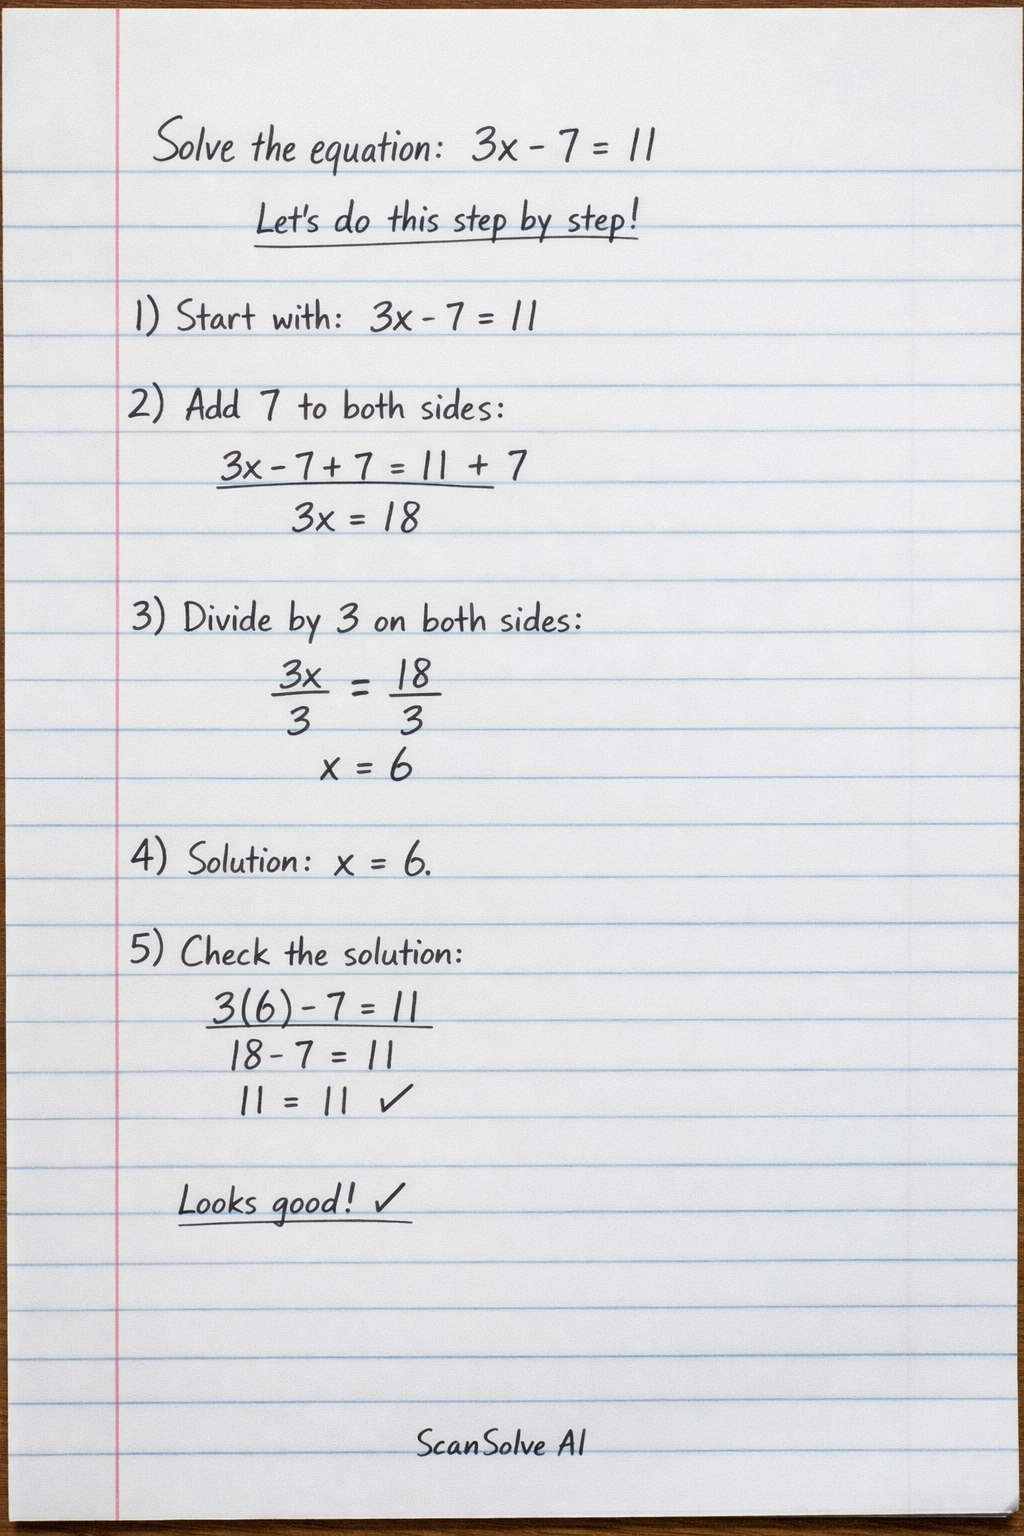 Solve the equation: 3x - 7 = 11
Let's do this step by step!
1) Start with: 3x - 7 = 11
2) Add 7 to both sides:
3x - 7 + 7 = 11 + 7
3x = 18
3) Divide by 3 on both sides:
3x/3 = 18/3
x = 6
4) Solution: x = 6.
5) Check the solution:
3(6) - 7 = 11
18 - 7 = 11
11 = 11 ✓
Looks good! ✓
ScanSolve AI